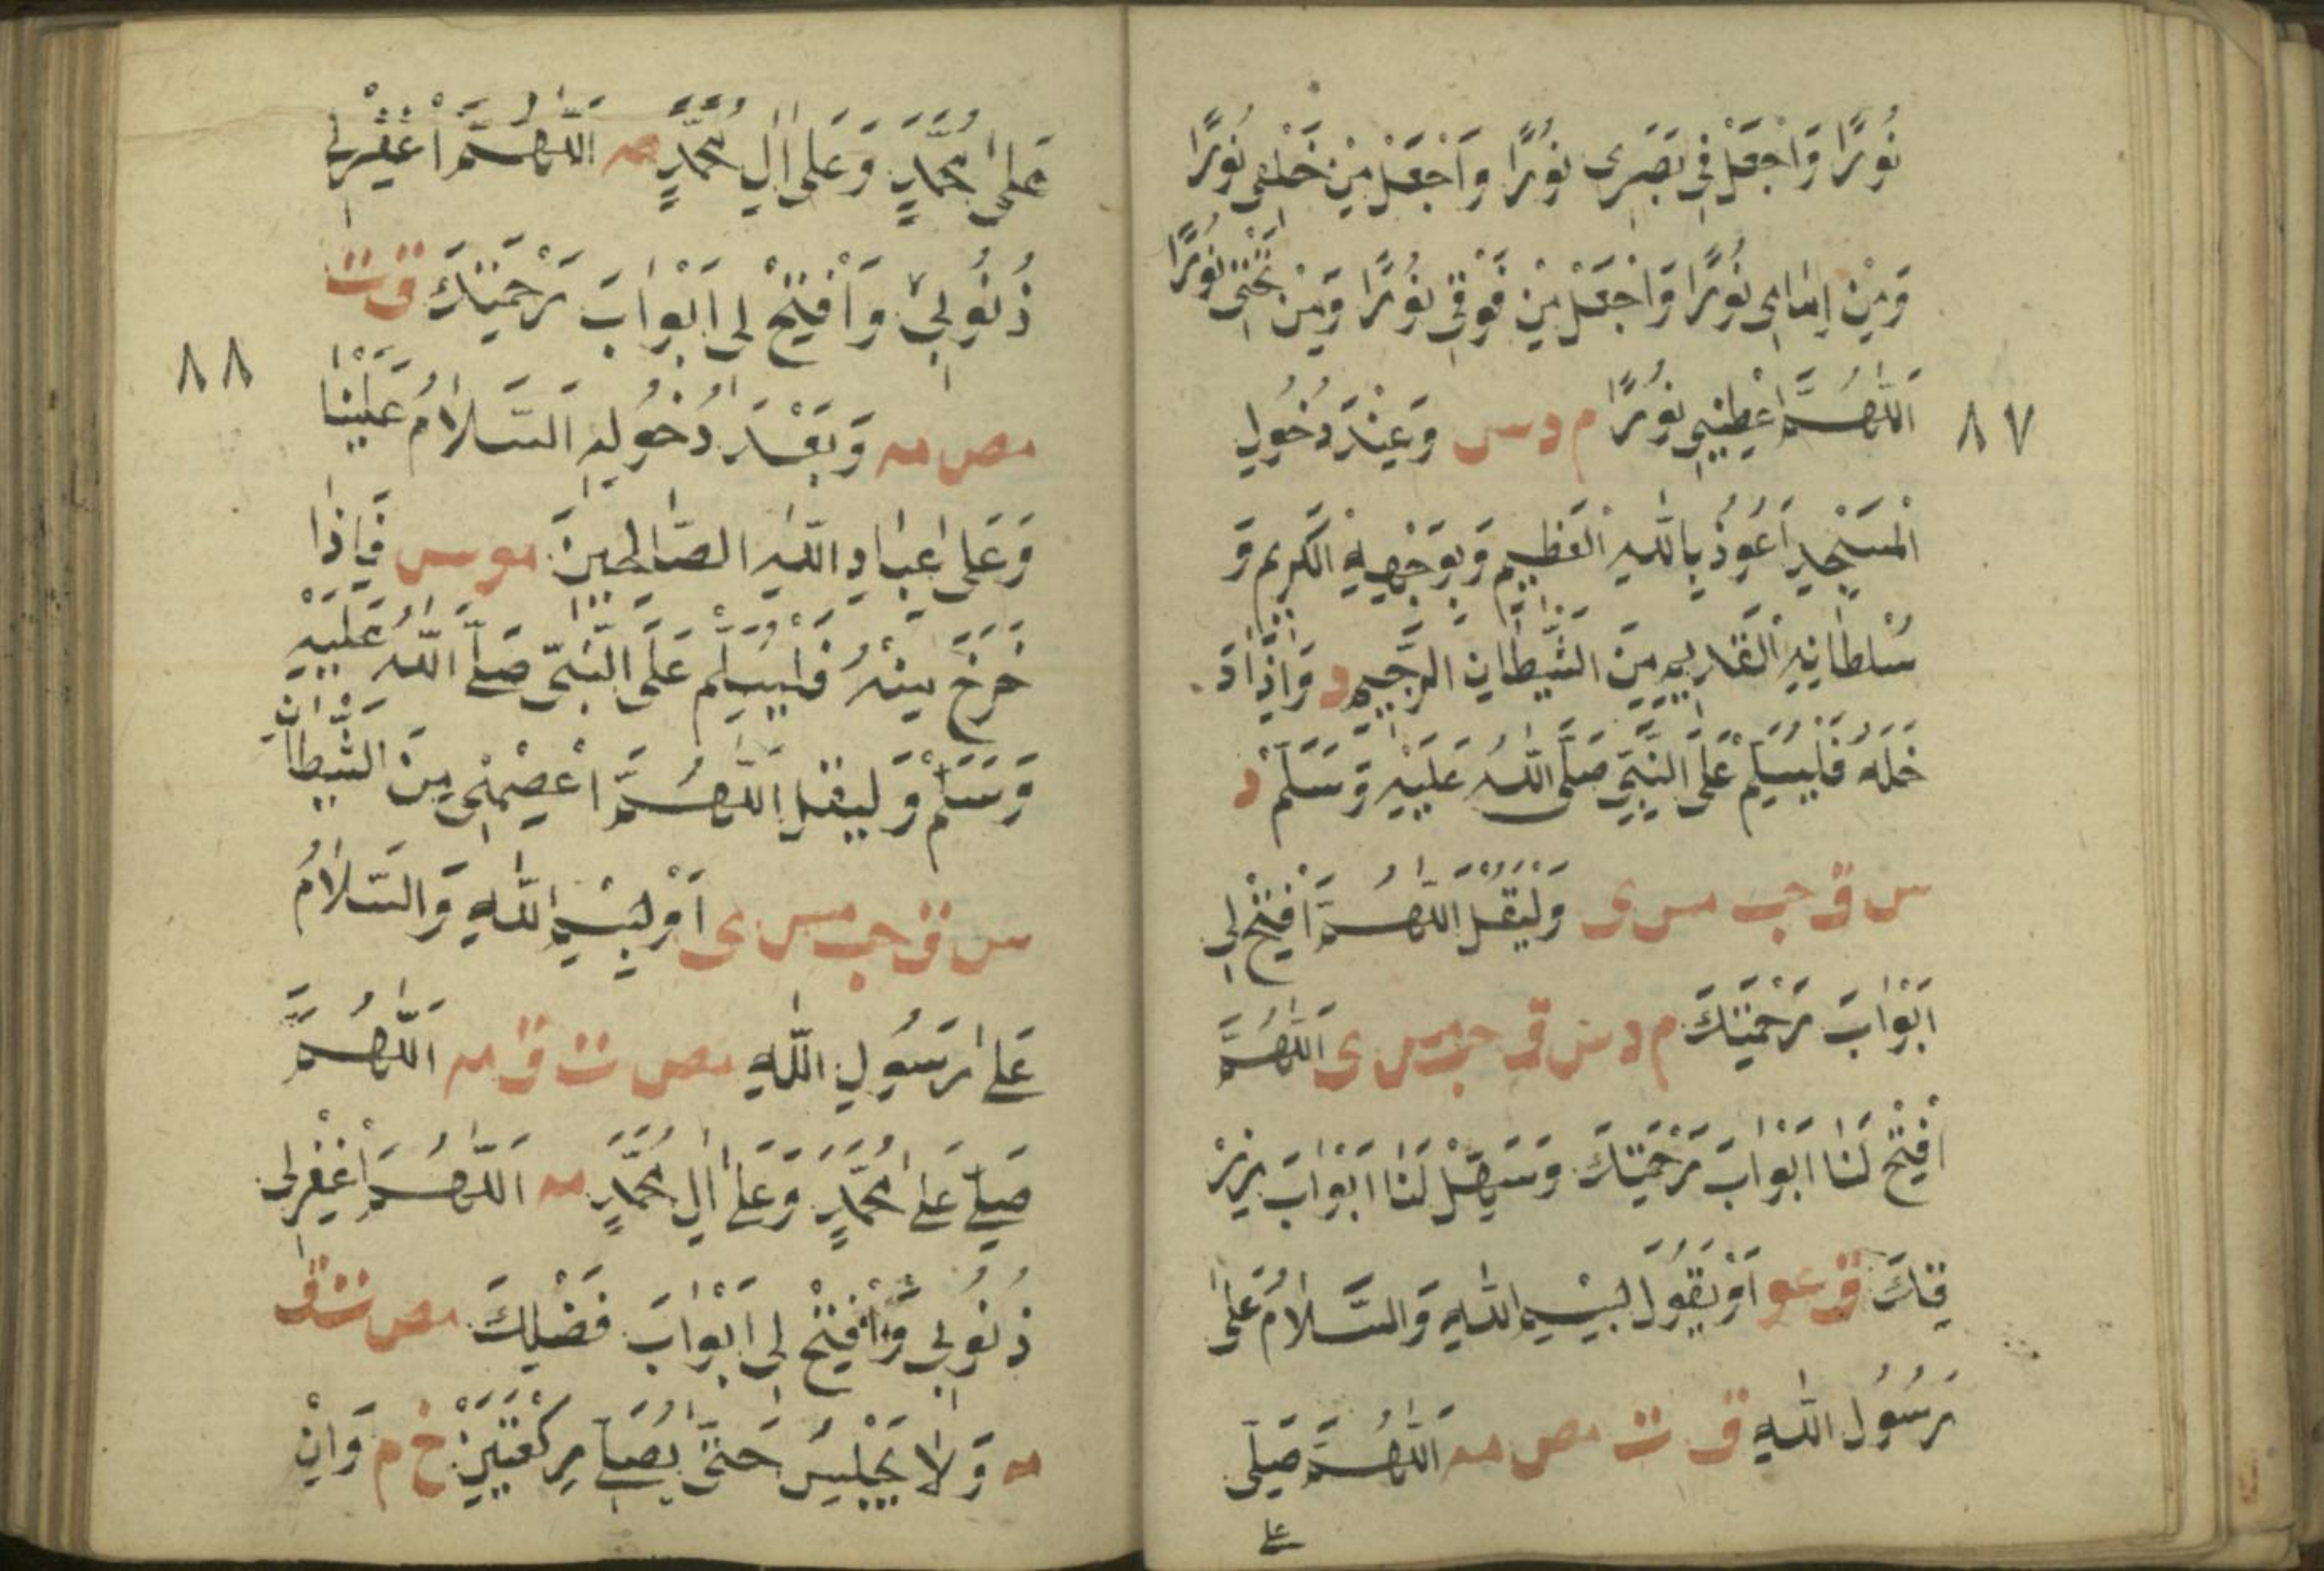 نُورًا وَاجْعَلْ فِي بَصَرِى نُورًا وَاجْعَلْ مِنْ خَلْفِى نُورًا
وَمِنْ اِمَامِى نُورًا وَاجْعَلْ مِنْ فَوْقِى نُورًا وَمِنْ تَحْتِى نُورًا
٨٧
اَللّٰهُمَّ اعْطِنِى نُورًا م د س وَعِنْدَ دُخُولِ
الْمَسْجِدِ اَعُوذُ بِاللّٰهِ الْعَظِيمِ وَبِوَجْهِهِ الْكَرِيمِ وَ
سُلْطَانِهِ الْقَدِيمِ مِنَ الشَّيْطَانِ الرَّجِيمِ د وَاِذَا دَ
خَلَهُ فَلْيُسَلِّمْ عَلَى النَّبِيِّ صَلَّى اللّٰهُ عَلَيْهِ وَسَلَّمَ د
س ق حب مس ى وَلْيَقُلْ اَللّٰهُمَّ افْتَحْ لِى
اَبْوَابَ رَحْمَتِكَ م د س ق حب مس ى اَللّٰهُمَّ
افْتَحْ لَنَا اَبْوَابَ رَحْمَتِكَ وَسَهِّلْ لَنَا اَبْوَابَ رِزْ
قِكَ ق عو اَوْ يَقُولَ بِسْمِ اللّٰهِ وَالسَّلَامُ عَلٰى
رَسُولِ اللّٰهِ ق ت مص مه اَللّٰهُمَّ صَلِّى
على
عَلٰى مُحَمَّدٍ وَعَلٰى اٰلِ مُحَمَّدٍ مه اَللّٰهُمَّ اغْفِرْلِى
ذُنُوبِى وَافْتَحْ لِى اَبْوَابَ رَحْمَتِكَ ق ت
٨٨
مص مه وَبَعْدَ دُخُولِهِ اَلسَّلَامُ عَلَيْنَا
وَعَلٰى عِبَادِ اللّٰهِ الصَّالِحِينَ مو مس فَاِذَا
خَرَجَ مِنْهُ فَلْيُسَلِّمْ عَلَى النَّبِىِّ صَلَّى اللّٰهُ عَلَيْهِ
وَسَلَّمَ وَلْيَقُلْ اَللّٰهُمَّ اعْصِمْنِى مِنَ الشَّيْطَانِ
س ق حب مس ى اَوْ بِسْمِ اللّٰهِ وَالسَّلَامُ
عَلٰى رَسُولِ اللّٰهِ مص ت ق مه اَللّٰهُمَّ
صَلِّ عَلٰى مُحَمَّدٍ وَعَلٰى اٰلِ مُحَمَّدٍ مه اَللّٰهُمَّ اغْفِرْلِى
ذُنُوبِى وَافْتَحْ لِى اَبْوَابَ فَضْلِكَ مص ت ق
مه وَلَا يَجْلِسُ حَتّٰى يُصَلِّىَ رَكْعَتَيْنِ خ م وَاِنْ